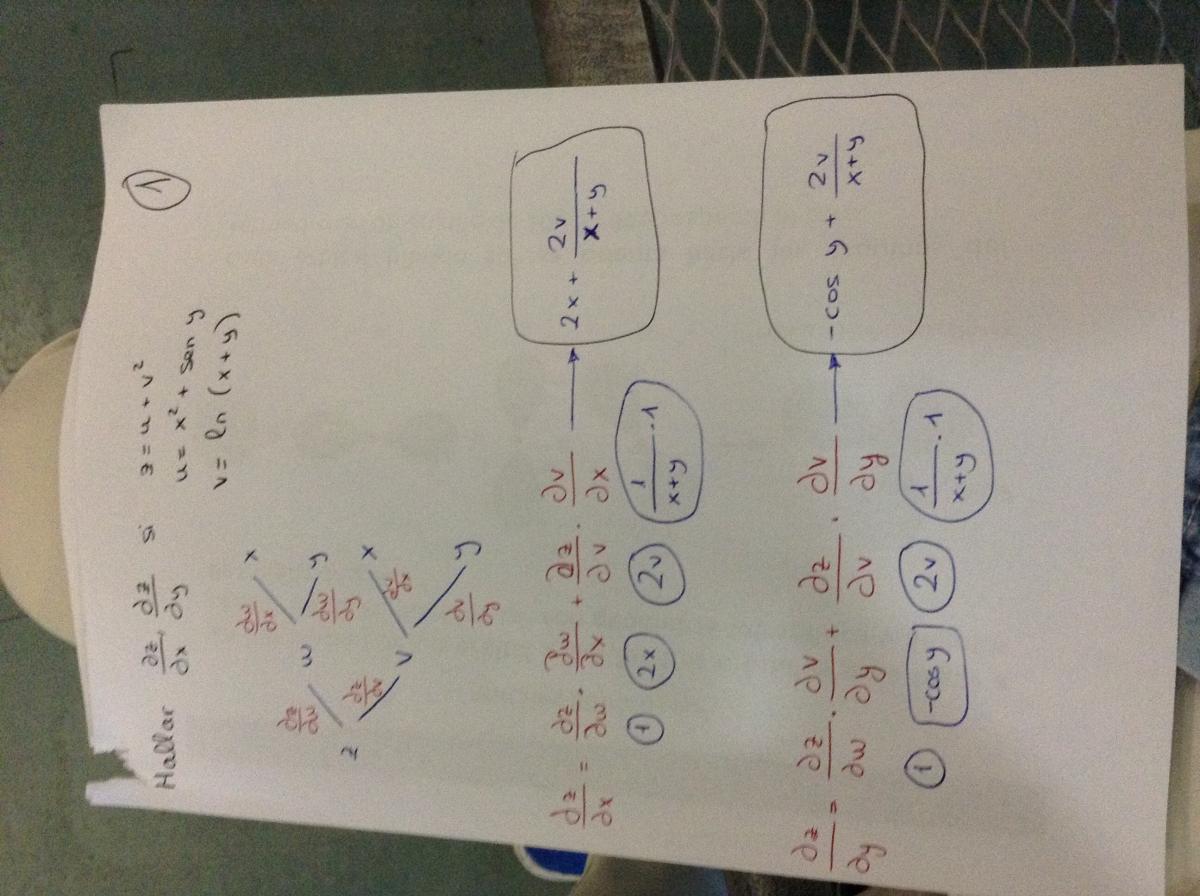 1
Hallar ∂z/∂x, ∂z/∂y si z = u + v²
u = x² + sen y
v = ln (x + y)
∂w/∂x x
∂z/∂w w ∂w/∂y y
z ∂z/∂v v ∂v/∂x x
∂v/∂y y
∂z/∂x = ∂z/∂w . ∂w/∂x + ∂z/∂v . ∂v/∂x → 2x + 2v/x+y
1 2x 2v 1/x+y . 1
∂z/∂y = ∂z/∂w . ∂v/∂y + ∂z/∂v . ∂v/∂y → -cos y + 2v/x+y
1 -cos y 2v 1/x+y . 1